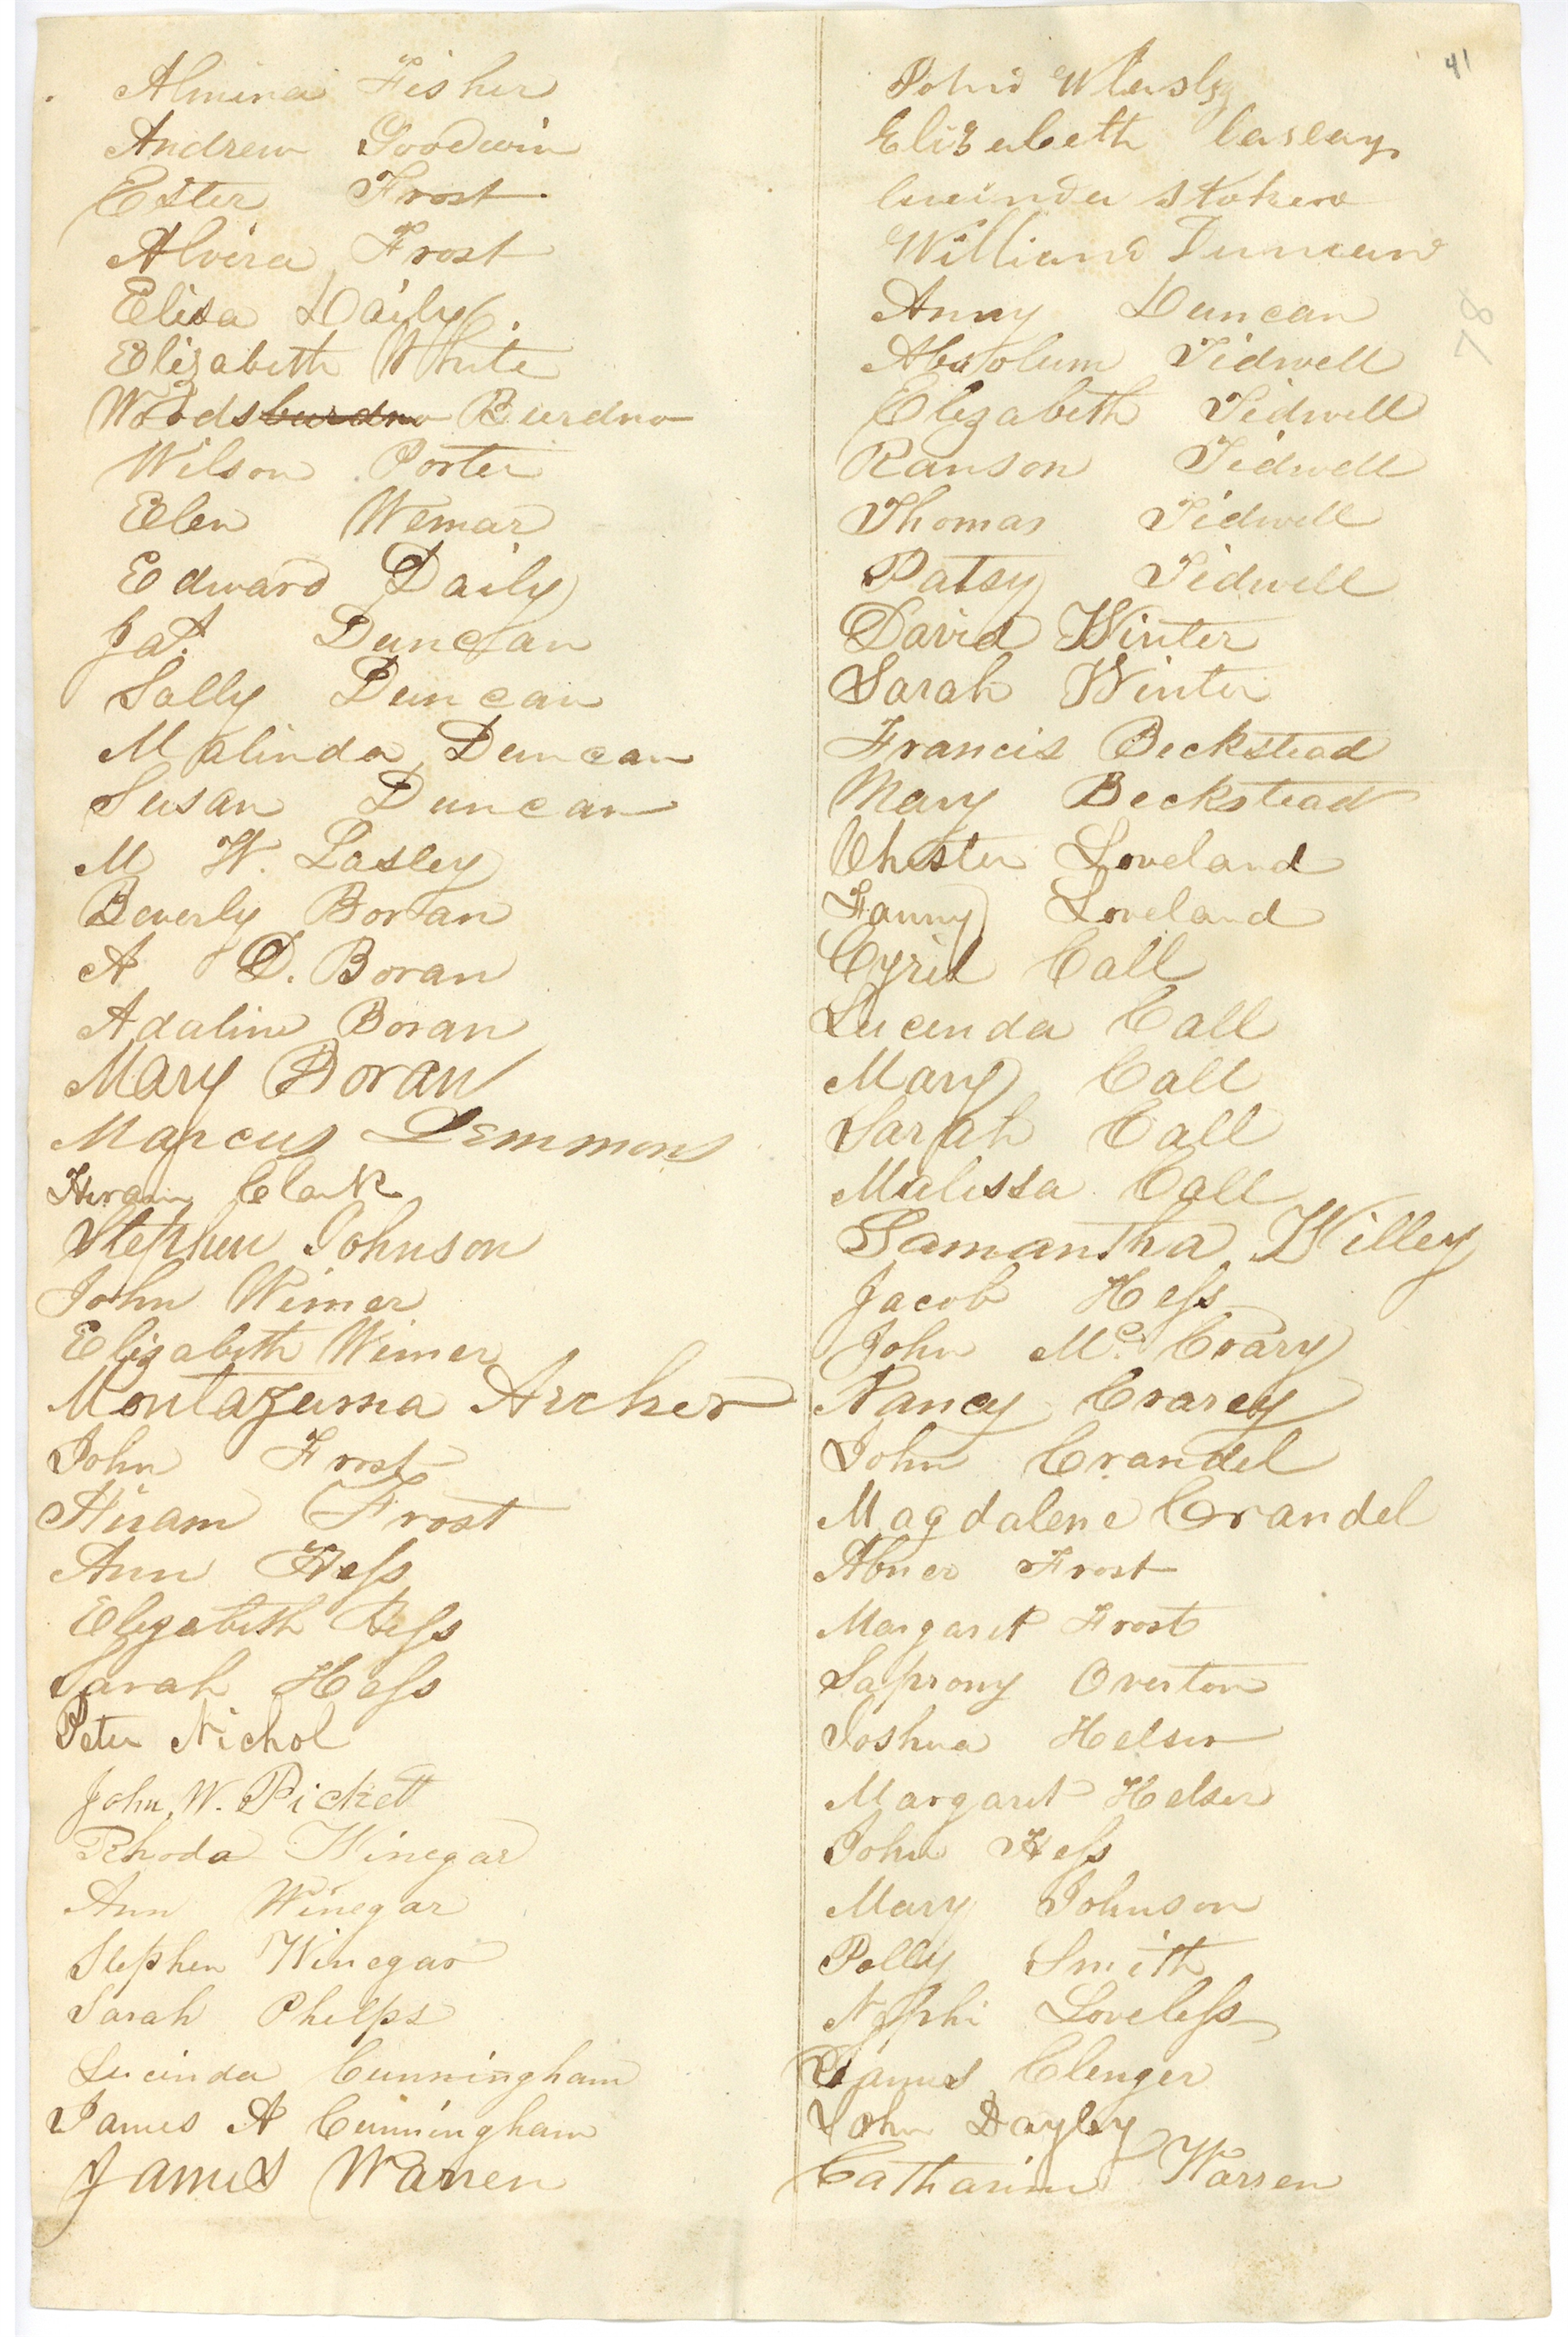 41
Almina Fisher
Andrew Goodwin
Ester Frost
Alvira Frost
Elisa Daily
Elizabeth White
Woodsburdno Burdno
Wilson Porter
Elen Wemar
Edward Daily
Ja? Duncan
Sally Duncan
Malinda Duncan
Susan Duncan
M W. Lasley
Beverly Boran
A D. Boran
Adaline Boran
Mary Boran
Marcus Lemmons
Hiram Clark
Stephen Johnson
John Wimer
Elizabeth Wimer
Montazuma Archer
John Frost
Hiram Frost
Ann Hess
Elizabeth Hess
Sarah Hess
Peter Nichol
John W. Pickett
Rhoda Winegar
Ann Winegar
Stephen Winegar
Sarah Phelps
Lucinda Cunningham
James A Cunningham
James Warren
Elizabeth lasley
William Duncan
Anny Duncan
Absolum Tidwell
78
Elizabeth Tidwell
Ranson Tidwell
Thomas Tidwell
Patsy Tidwell
David Winter
Sarah Winter
Francis Beckstead
Mary Beckstead
Chester Loveland
Fanny Loveland
Cyril Call
Lucinda Call
Mary Call
Sarah Call
Malissa Call
Samantha Willey
Jacob Hess
John Mc. Crary
Nancy Crarey
John Crandel
Magdalene Crandel
Abner Frost
Margaret Frost
Saprony Overton
Joshua Helser
Margaret Helser
John Hess
Mary Johnson
Polly Smith
Nephi Loveless
James Clenger
John Dayley
Catharine Warren